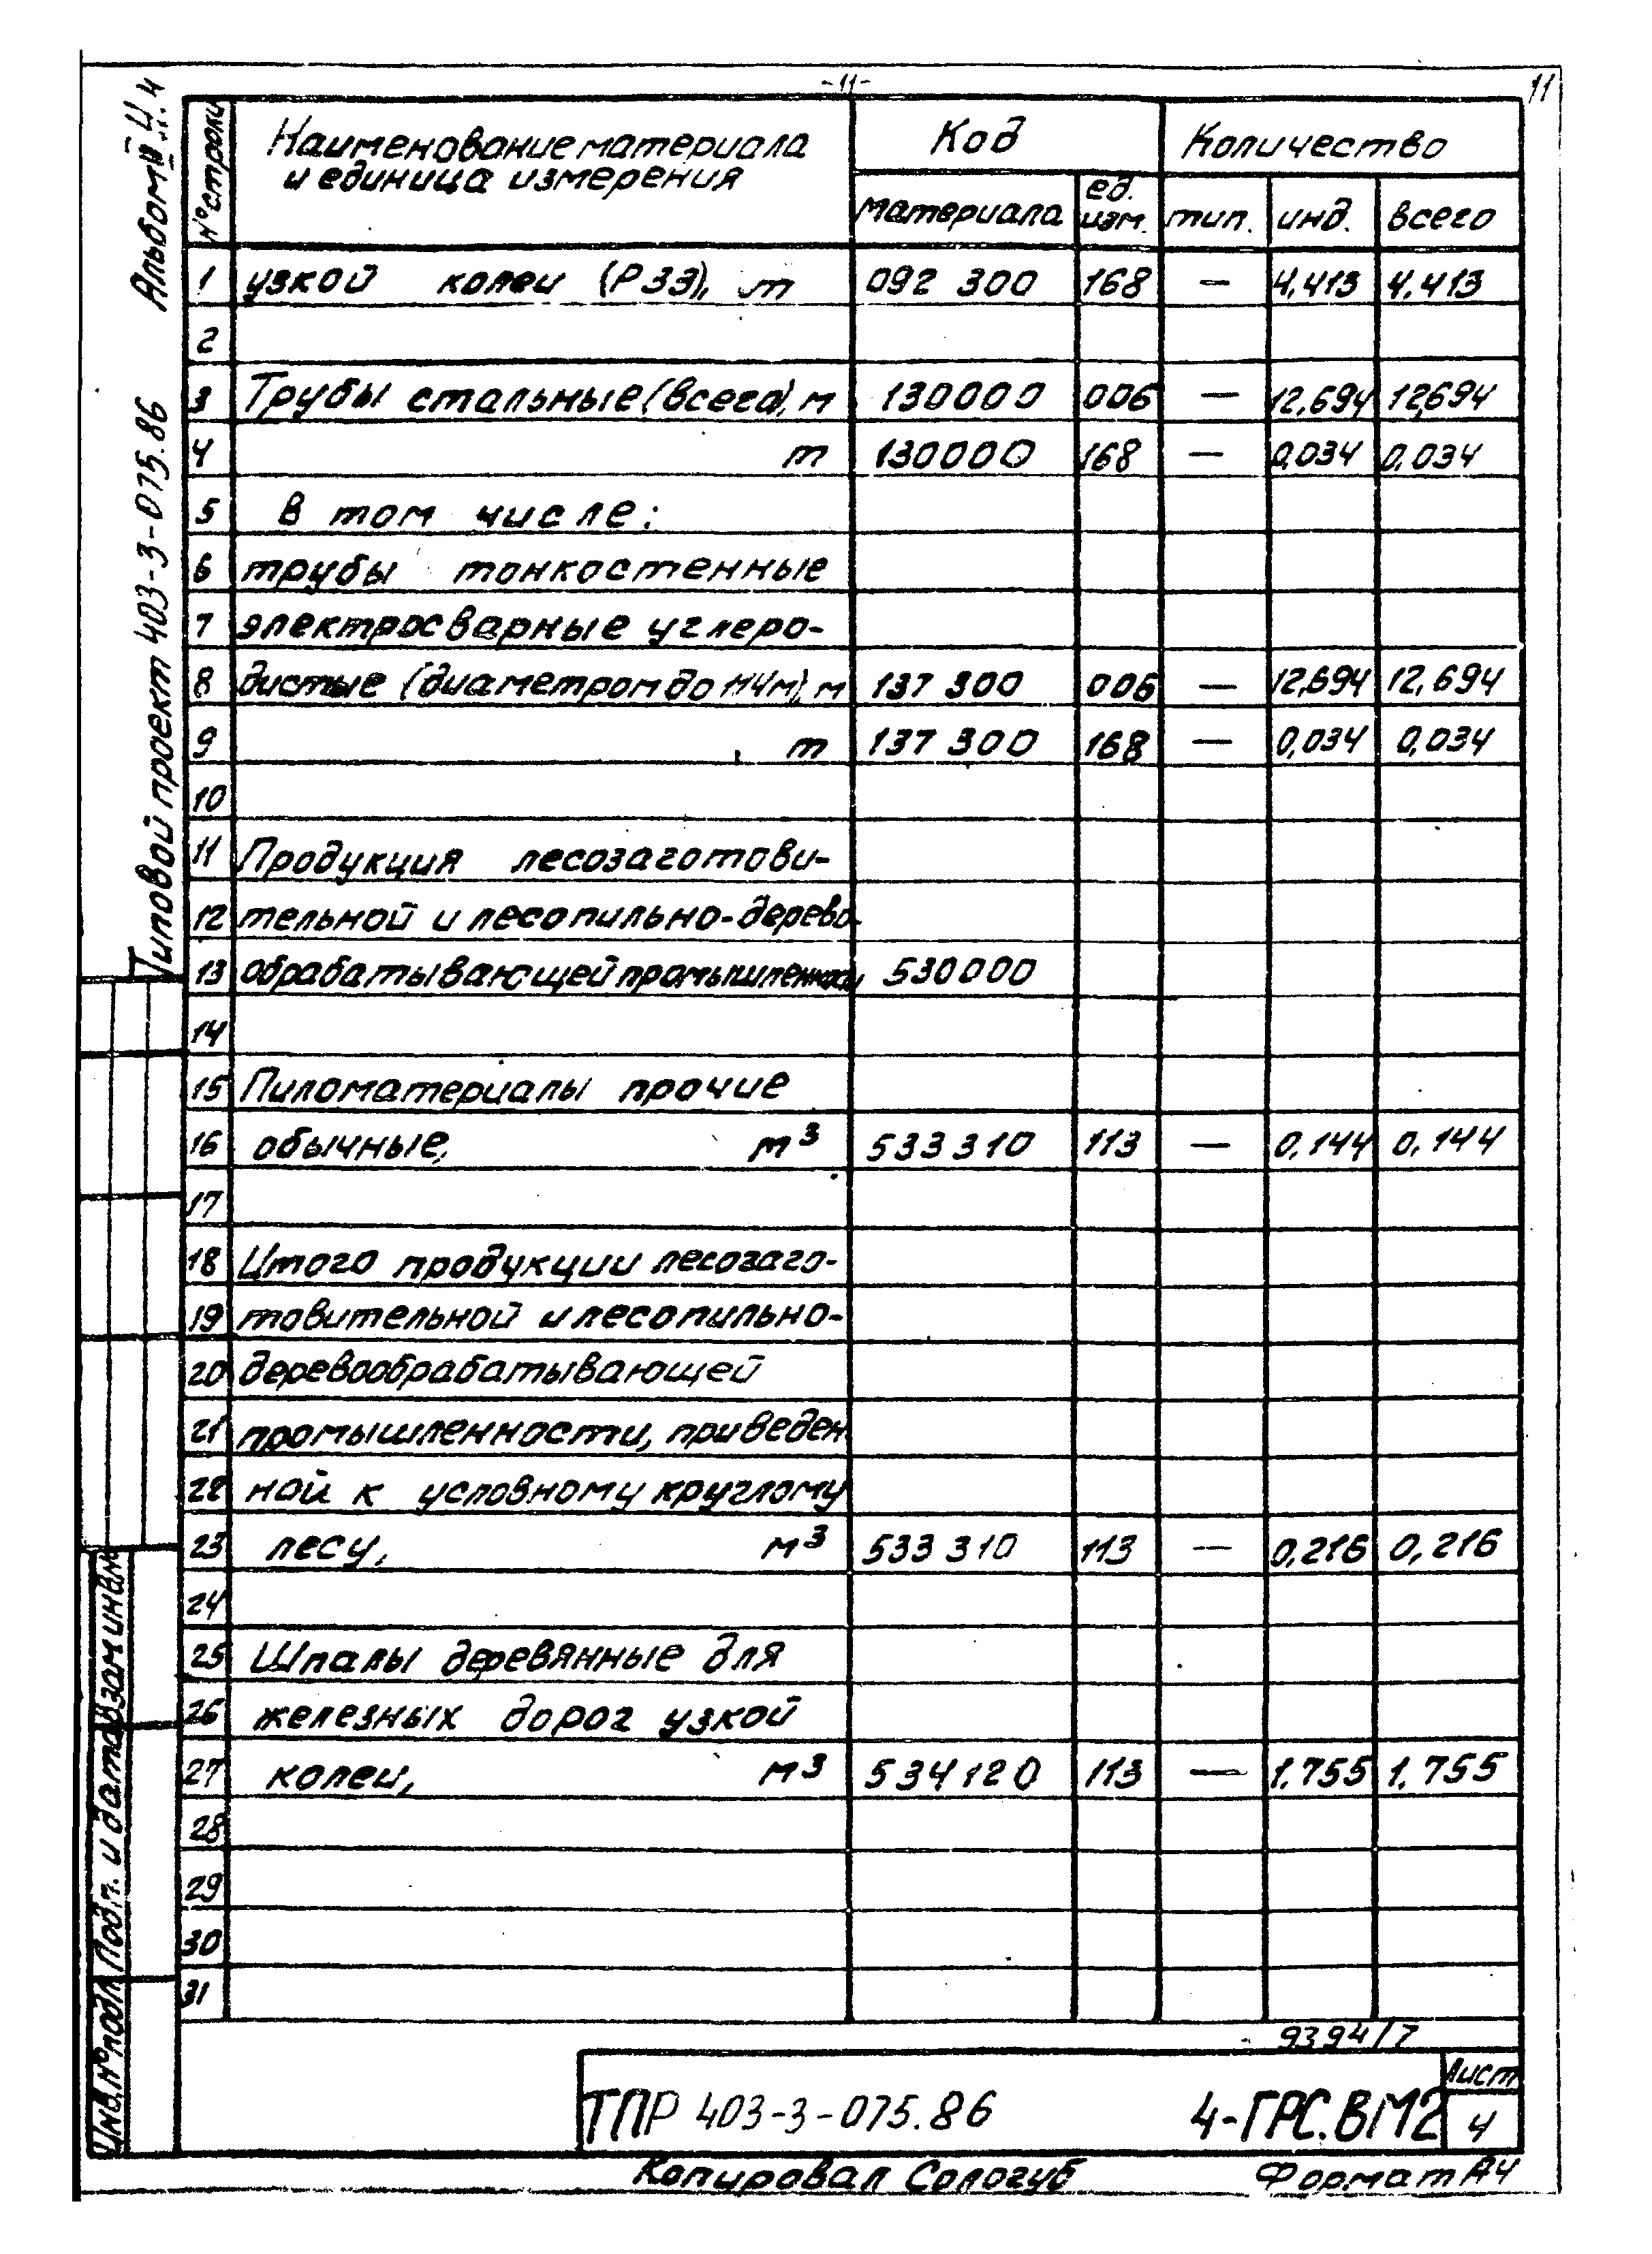 -11-
11
Альбом II Ч.4
Типовой проект 403-3-075.86
№ строки
Наименование материала
и единица измерения
Код
Количество
материала
ед.
изм.
тип.
инд.
всего
1 узкой колеи (Р33), т 092 300 168 — 4,413 4,413
2
3 Трубы стальные (всего), м 130000 006 — 12,694 12,694
4 т 130000 168 — 0,034 0,034
5 В том числе:
6 трубы тонкостенные
7 электросварные углеро-
8 дистые (диаметром до 114м), м 137 300 006 — 12,694 12,694
9 , т 137 300 168 — 0,034 0,034
10
11 Продукция лесозаготови-
12 тельной и лесопильно-дерево-
13 обрабатывающей промышленности 530000
14
15 Пиломатериалы прочие
16 обычные, м³ 533 310 113 — 0,144 0,144
17
18 Итого продукции лесозаго-
19 товительной и лесопильно-
20 деревообрабатывающей
21 промышленности, приведен
22 ной к условному круглому
23 лесу, м³ 533 310 113 — 0,216 0,216
24
25 Шпалы деревянные для
26 железных дорог узкой
27 колеи, м³ 534120 113 — 1,755 1,755
28
29
30
31
Взам инв.№
Подп. и дата
Инв.№ подл
9394/7
ТПР 403-3-075.86 4-ГРС.ВМ2
Лист
4
Копировал Сологуб
Формат А4